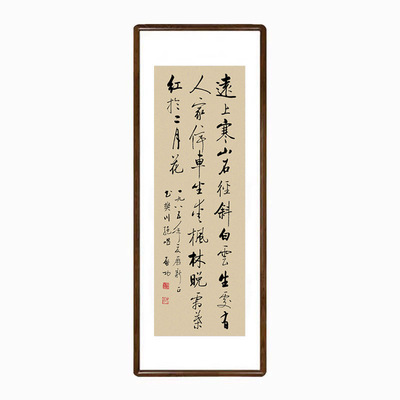 遠上寒山石徑斜白雲生處有
人家停車坐愛楓林晚霜葉
紅於二月花
一九八五年夏日
書樊川絕唱 啟功